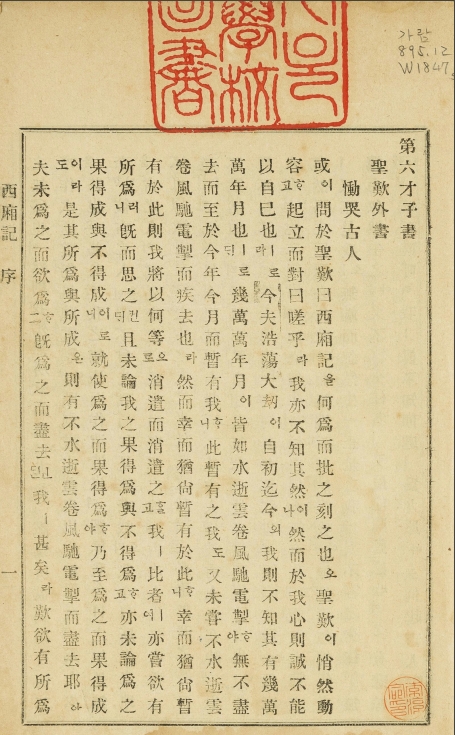 가람
895.12
W1847s
學校
圖書
第六才子書
聖歎外書
慟哭古人
或이問於聖歎曰西廂記을何爲而批之刻之也오聖歎이悄然動
容ᄒᆞ고起立而對曰嗟乎라我亦不知其然나然而於我心則誠不能
以自已也ㅣ로라今夫浩蕩大刧이自初迄今의我則不知其有幾萬
萬年月也ㅣ로ᄃᆡ幾萬萬年月이皆如水逝雲卷風馳電掣ᄒᆞ야無不盡
去而至於今年今月而暫有我ᄒᆞ니此暫有之我도又未嘗不水逝雲
卷風馳電掣而疾去也라然而幸而猶尙暫有於此ᄒᆞ니幸而猶尙暫
有於此則我將以何等으로消遣而消遣之ᄒᆞ고我ㅣ比者에亦嘗欲有
所爲러니旣而思之컨ᄃᆡ且未論我之果得爲與不得爲ᄒᆞ고亦未論爲之
果得成與不得成이로니就使爲之而果得爲ᄒᆞ야乃至爲之而果得成
이라도是其所爲與所成은則有不水逝雲卷風馳電掣而盡去耶아
夫未爲之而欲爲旣爲之而盡去我ㅣ甚矣라歎欲有所爲
西廂記 序 一